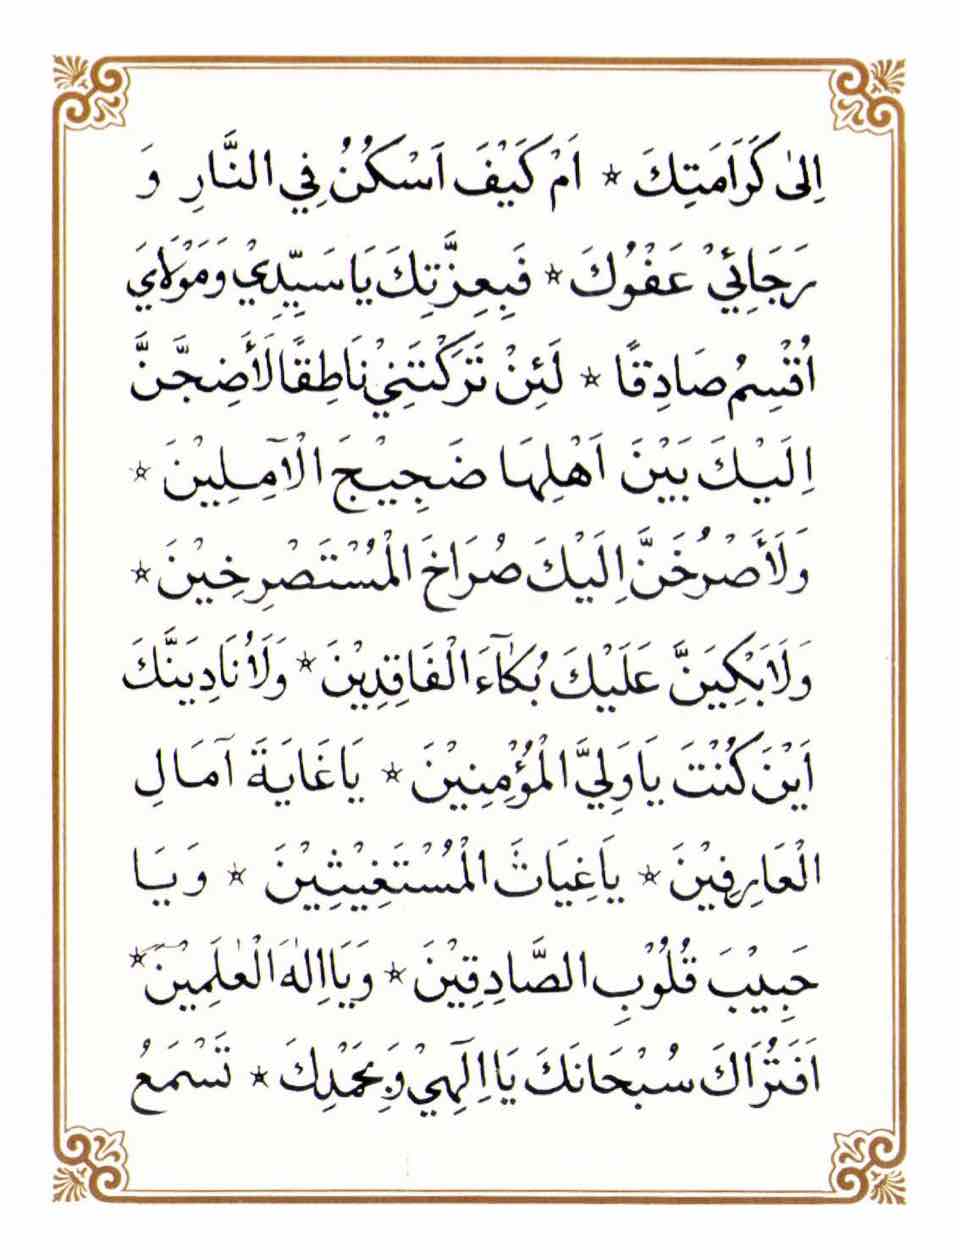 اِلىٰ كَرَامَتِكَ ٭ اَمْ كَيْفَ اَسْكُنُ فِي النَّارِ وَ
رَجَائِيْ عَفْوُكَ ٭ فَبِعِزَّتِكَ يَا سَيِّدِيْ وَمَوْلَايَ
اُقْسِمُ صَادِقًا ٭ لَئِنْ تَرَكْتَنِيْ نَاطِقًا لَأَضِجَّنَّ
اِلَيْكَ بَيْنَ اَهْلِهَا ضَجِيْجَ الْآمِلِيْنَ ٭
وَلَأَصْرُخَنَّ اِلَيْكَ صُرَاخَ الْمُسْتَصْرِخِيْنَ ٭
وَلَابَكِيَنَّ عَلَيْكَ بُكَآءَ الْفَاقِدِيْنَ ٭ وَلَاُنَادِيَنَّكَ
اَيْنَ كُنْتَ يَا وَلِيَّ الْمُؤْمِنِيْنَ ٭ يَا غَايَةَ آمَالِ
الْعَارِفِيْنَ ٭ يَا غِيَاثَ الْمُسْتَغِيْثِيْنَ ٭ وَيَا
حَبِيْبَ قُلُوْبِ الصَّادِقِيْنَ ٭ وَيَا اِلٰهَ الْعٰلَمِيْنَ ٭
اَفَتُرَاكَ سُبْحَانَكَ يَا اِلٰهِيْ وَبِحَمْدِكَ ٭ تَسْمَعُ